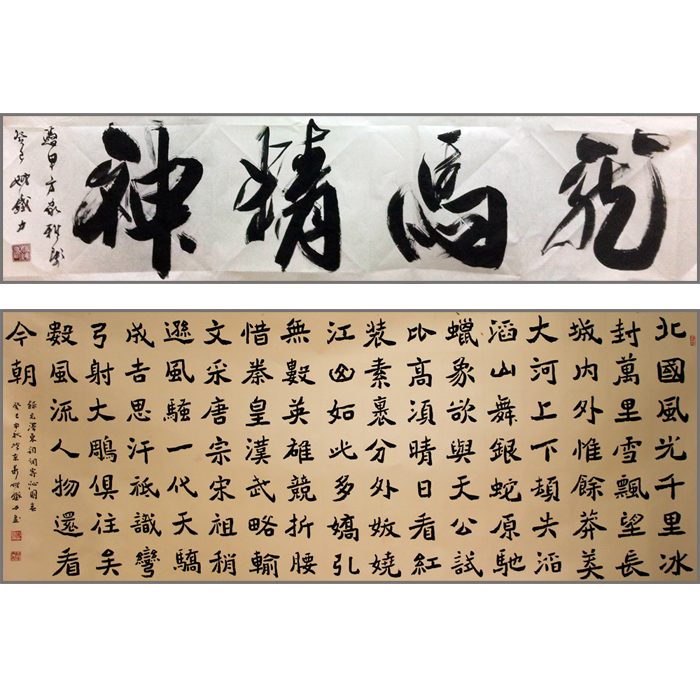 龍馬精神
癸巳
北國風光千里冰
封萬里雪飄望長
城內外惟餘莽莽
大河上下頓失滔
滔山舞銀蛇原馳
蠟象欲與天公試
比高須晴日看紅
裝素裹分外妖嬈
江山如此多嬌引
無數英雄競折腰
惜秦皇漢武略輸
文采唐宗宋祖稍
遜風騷一代天驕
成吉思汗祇識彎
弓射大鵰俱往矣
數風流人物還看
今朝
錄毛澤東詞調寄沁園春
癸巳中秋